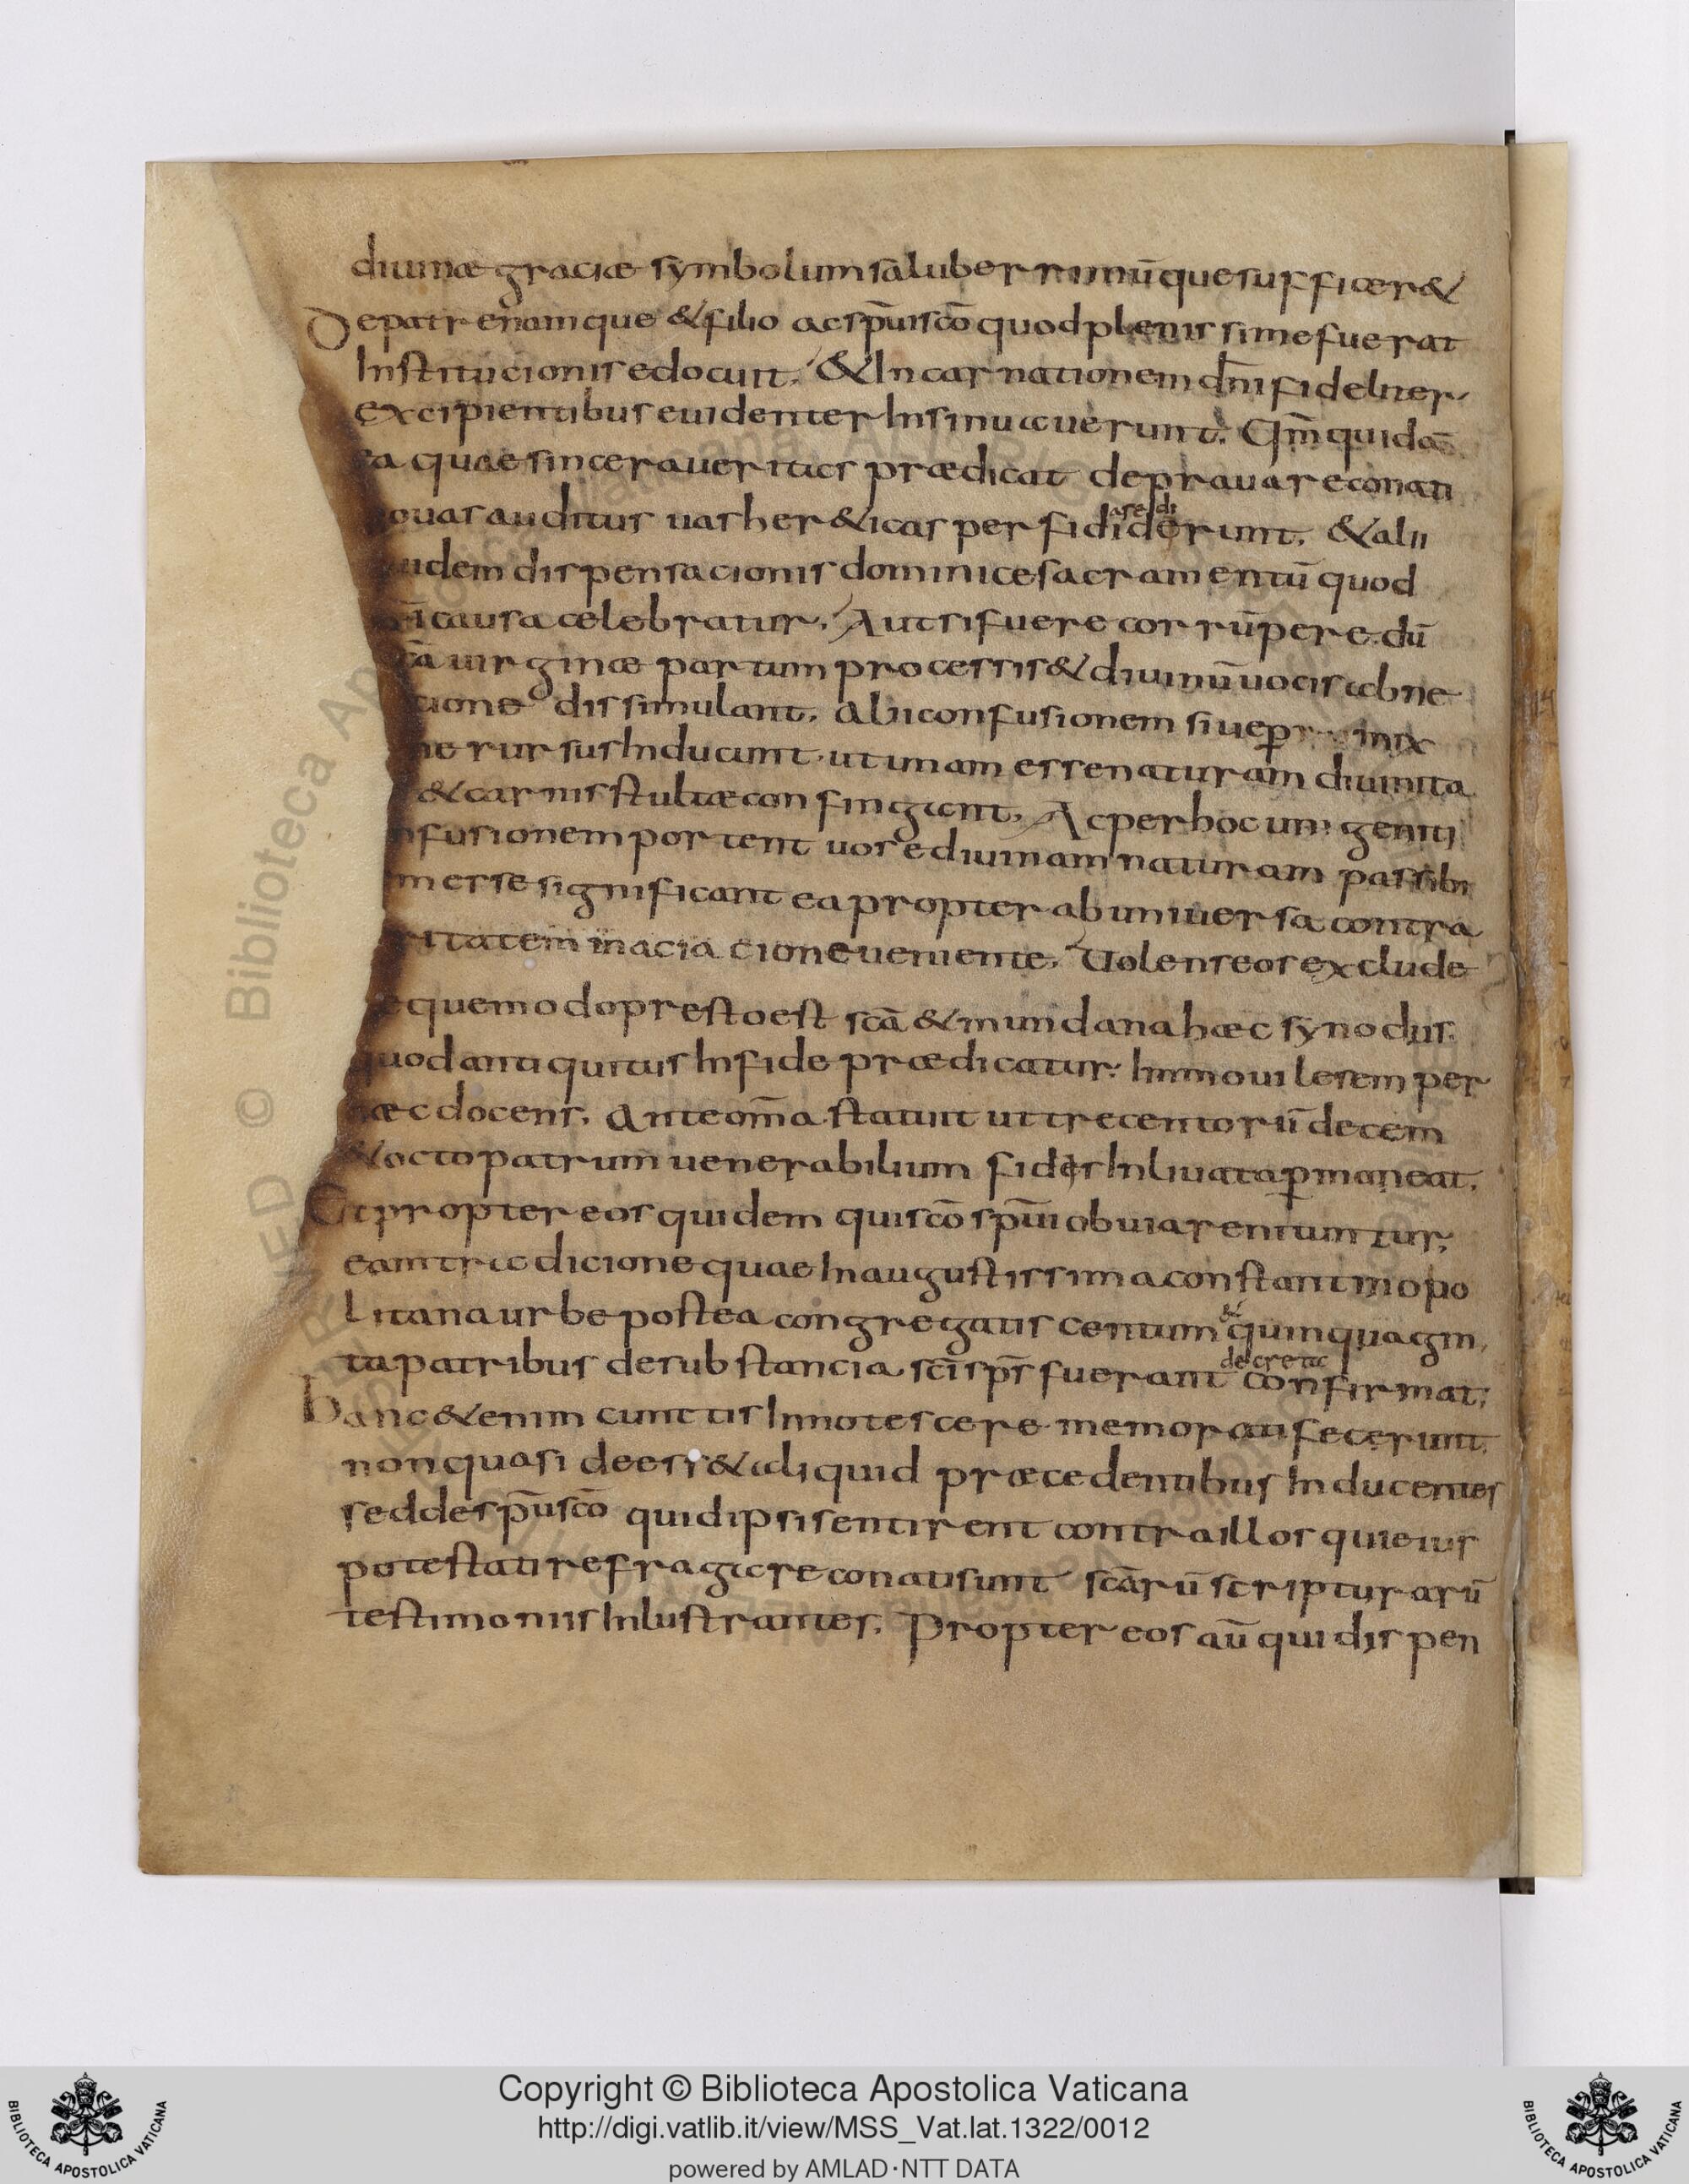 diuinæ graciæ symbolum saluberrimūque sufficer&
De patre namque & filio ac sp̄u sc̄o quod plenissime fuerat
Institucionis edocuit. & Incarnationem dn̄i fideliter
excipientibus euidenter Insinuauerunt. Qm̄ quidā
ea quae sincera ueritas prædicat deprauare conati
ouas auditus uas her&icas perfididerunt. & alii
asedi
uidem dispensacionis dominice sacramentū quod
i causa celebratur. Aut si fuere corrūpere. dū
cā uirginæ partum processis & diuinū uocis abne
cione dissimulant. alii confusionem siue p mix
ne rursus Inducunt. ut unam esse naturam diuinita
& carnis stultæ confingunt. Ac per hoc unigeniti
nfusionem portent uose diuinam naturam passibi
m esse significant ea propter ab uniuersa contra
ritatem inacia cione ueniente. Uolens eos exclude
e quemodo presto est sc̄a & mundana hæc synodus.
quod antiquitus In fide prædicatur. Immouile semper
hæc docens. Ante om̄a statuit ut trecentorū decem
& octo patrum uenerabilium fides Inliuata p̄maneat.
Et propter eos quidem qui sc̄o sp̄ui obuiare nituntur.
eam tradicione quae In augustissima constantinopo
litana urbe postea congregatis centum & quinquagin
ta patribus de substancia sc̄i sp̄s fuerant decreta confirmat.
Hanc & enim cunctis Innotescere memorati fecerunt.
non quasi deess& aliquid præcedentibus Inducentes
sed de sp̄u sc̄o quid ipsi sentirent contra illos qui eius
potestati refragare conati sunt sc̄arū scripturarū
testimoniis Inlustrantes. Propter eos aū qui dispen
Copyright © Biblioteca Apostolica Vaticana
http://digi.vatlib.it/view/MSS_Vat.lat.1322/0012
powered by AMLAD·NTT DATA
BIBLIOTECA APOSTOLICA VATICANA
BIBLIOTECA APOSTOLICA VATICANA